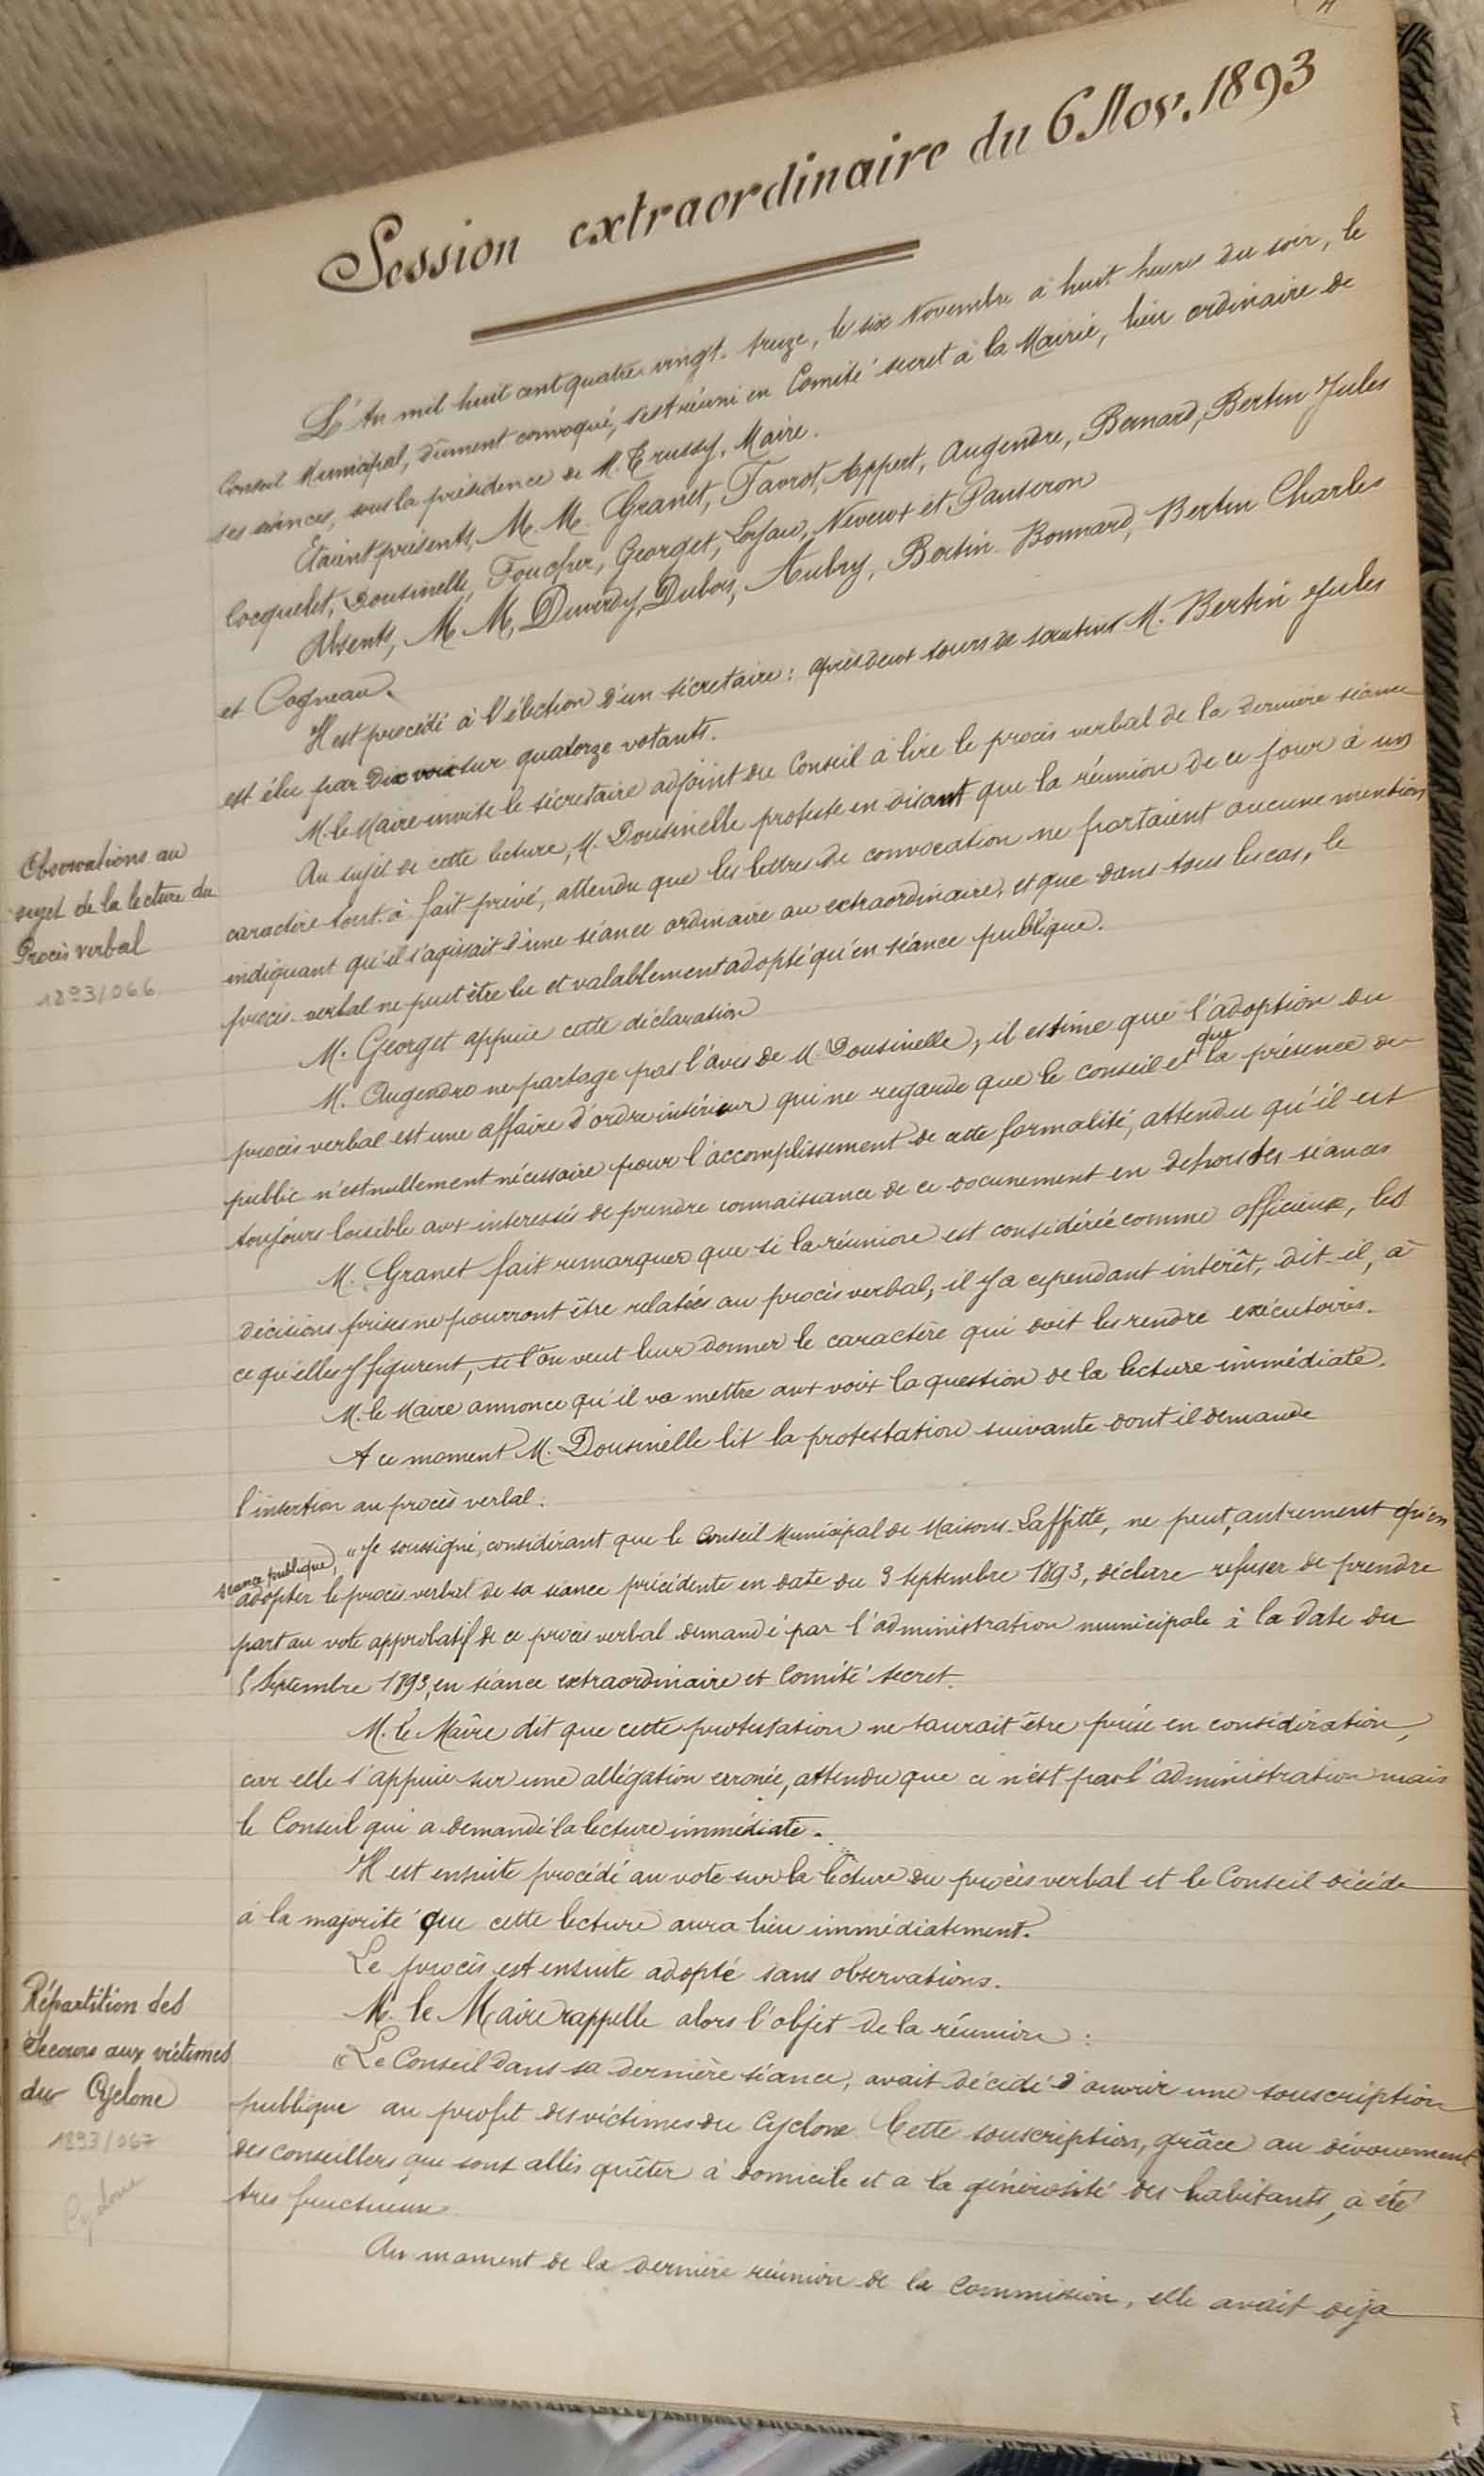 Session extraordinaire du 6 Nov. 1893
L'An mil huit cent quatre-vingt-treize, le six Novembre à huit heures du soir, le
Conseil Municipal, dûment convoqué, s'est réuni en Comité secret à la Mairie, lieu ordinaire de
ses séances, sous la présidence de M. Trussy, Maire.
Etaient présents, M. M. Granet, Favrot, Appert, Augendre, Bernard, Bertin Jules
Cocquelet, Dousinelle, Foucher, Georget, Loyau, Neveux et Panseron
Absents, M. M. Duverdy, Dubois, Aubry, Bertin-Bonnard, Bertin Charles
et Cagneau.
Il est procédé à l'élection d'un sécretaire : après deux tours de scrutins M. Bertin Jules
est élu par dix voix sur quatorze votants.
M. le Maire invite le sécretaire adjoint du Conseil à lire le procès verbal de la dernière séance
Observations au
sujet de la lecture du
Procès verbal
1893/066
Au sujet de cette lecture, M. Dousinelle proteste en disant que la réunion de ce jour à un
caractère tout à fait privé, attendu que les lettres de convocation ne portaient aucune mention
indiquant qu'il s'agissait d'une séance ordinaire ou extraordinaire, et que dans tous les cas, le
procès-verbal ne peut être lu et valablement adopté qu'en séance publique.
M. Georget appuie cette déclaration
M. Augendre ne partage pas l'avis de M. Dousinelle, il estime que l'adoption du
procès verbal est une affaire d'ordre intérieur qui ne regarde que le conseil et que la présence du
public n'est nullement nécessaire pour l'accomplissement de cette formalité, attendu qu'il est
toujours loisible aux interessés de prendre connaissance de ce document en dehors des séances
M. Granet fait remarquer que si la réunion est considérée comme officieuse, les
décisions prises ne pourront être relatées au procès verbal, il y a cependant intérêt, dit-il, à
ce qu'elles y figurent, si l'on veut leur donner le caractère qui doit les rendre exécutoires.
M. le Maire annonce qu'il va mettre aux voix la question de la lecture immédiate.
A ce moment M. Dousinelle lit la protestation suivante dont il demande
l'insertion au procès verbal :
"Je soussigné, considérant que le Conseil Municipal de Maisons-Laffitte, ne peut, autrement qu'en
séance publique, adopter le procès-verbal de sa séance précédente en date du 9 Septembre 1893, déclare refuser de prendre
part au vote approbatif de ce procès verbal demandé par l'administration municipale à la date du
Septembre 1893, en séance extraordinaire et Comité secret.
M. le Maire dit que cette protestation ne saurait être prise en considération,
car elle s'appuie sur une allégation erronée, attendu que ce n'est pas l'administration mais
le Conseil qui a demandé la lecture immédiate.
Il est ensuite procédé au vote sur la lecture du procès verbal et le Conseil décide
à la majorité que cette lecture aura lieu immédiatement.
Le procès est ensuite adopté sans observations.
M. le Maire rappelle alors l'objet de la réunion :
Répartition des
Secours aux victimes
du Cyclone
1893/067
Cyclone
"Le Conseil dans sa dernière séance, avait décidé d'ouvrir une souscription
publique au profit des victimes du Cyclone. Cette souscription, grâce au dévouement
des conseillers qui sont allés quêter à domicile et a la générosité des habitants, a été
très fructueuse
Au moment de la dernière réunion de la Commission, elle avait déjà